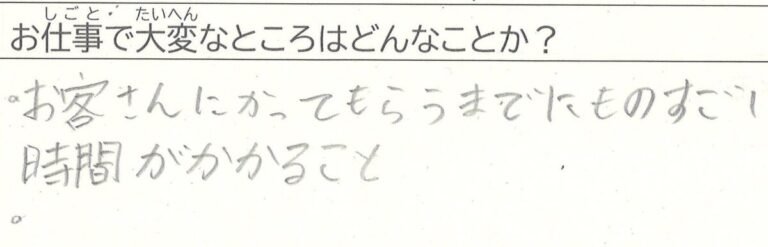 しごと・ たいへん
お仕事で大変なところはどんなことか？
。お客さんにかってもらうまでにものすごい
時間がかかること
。